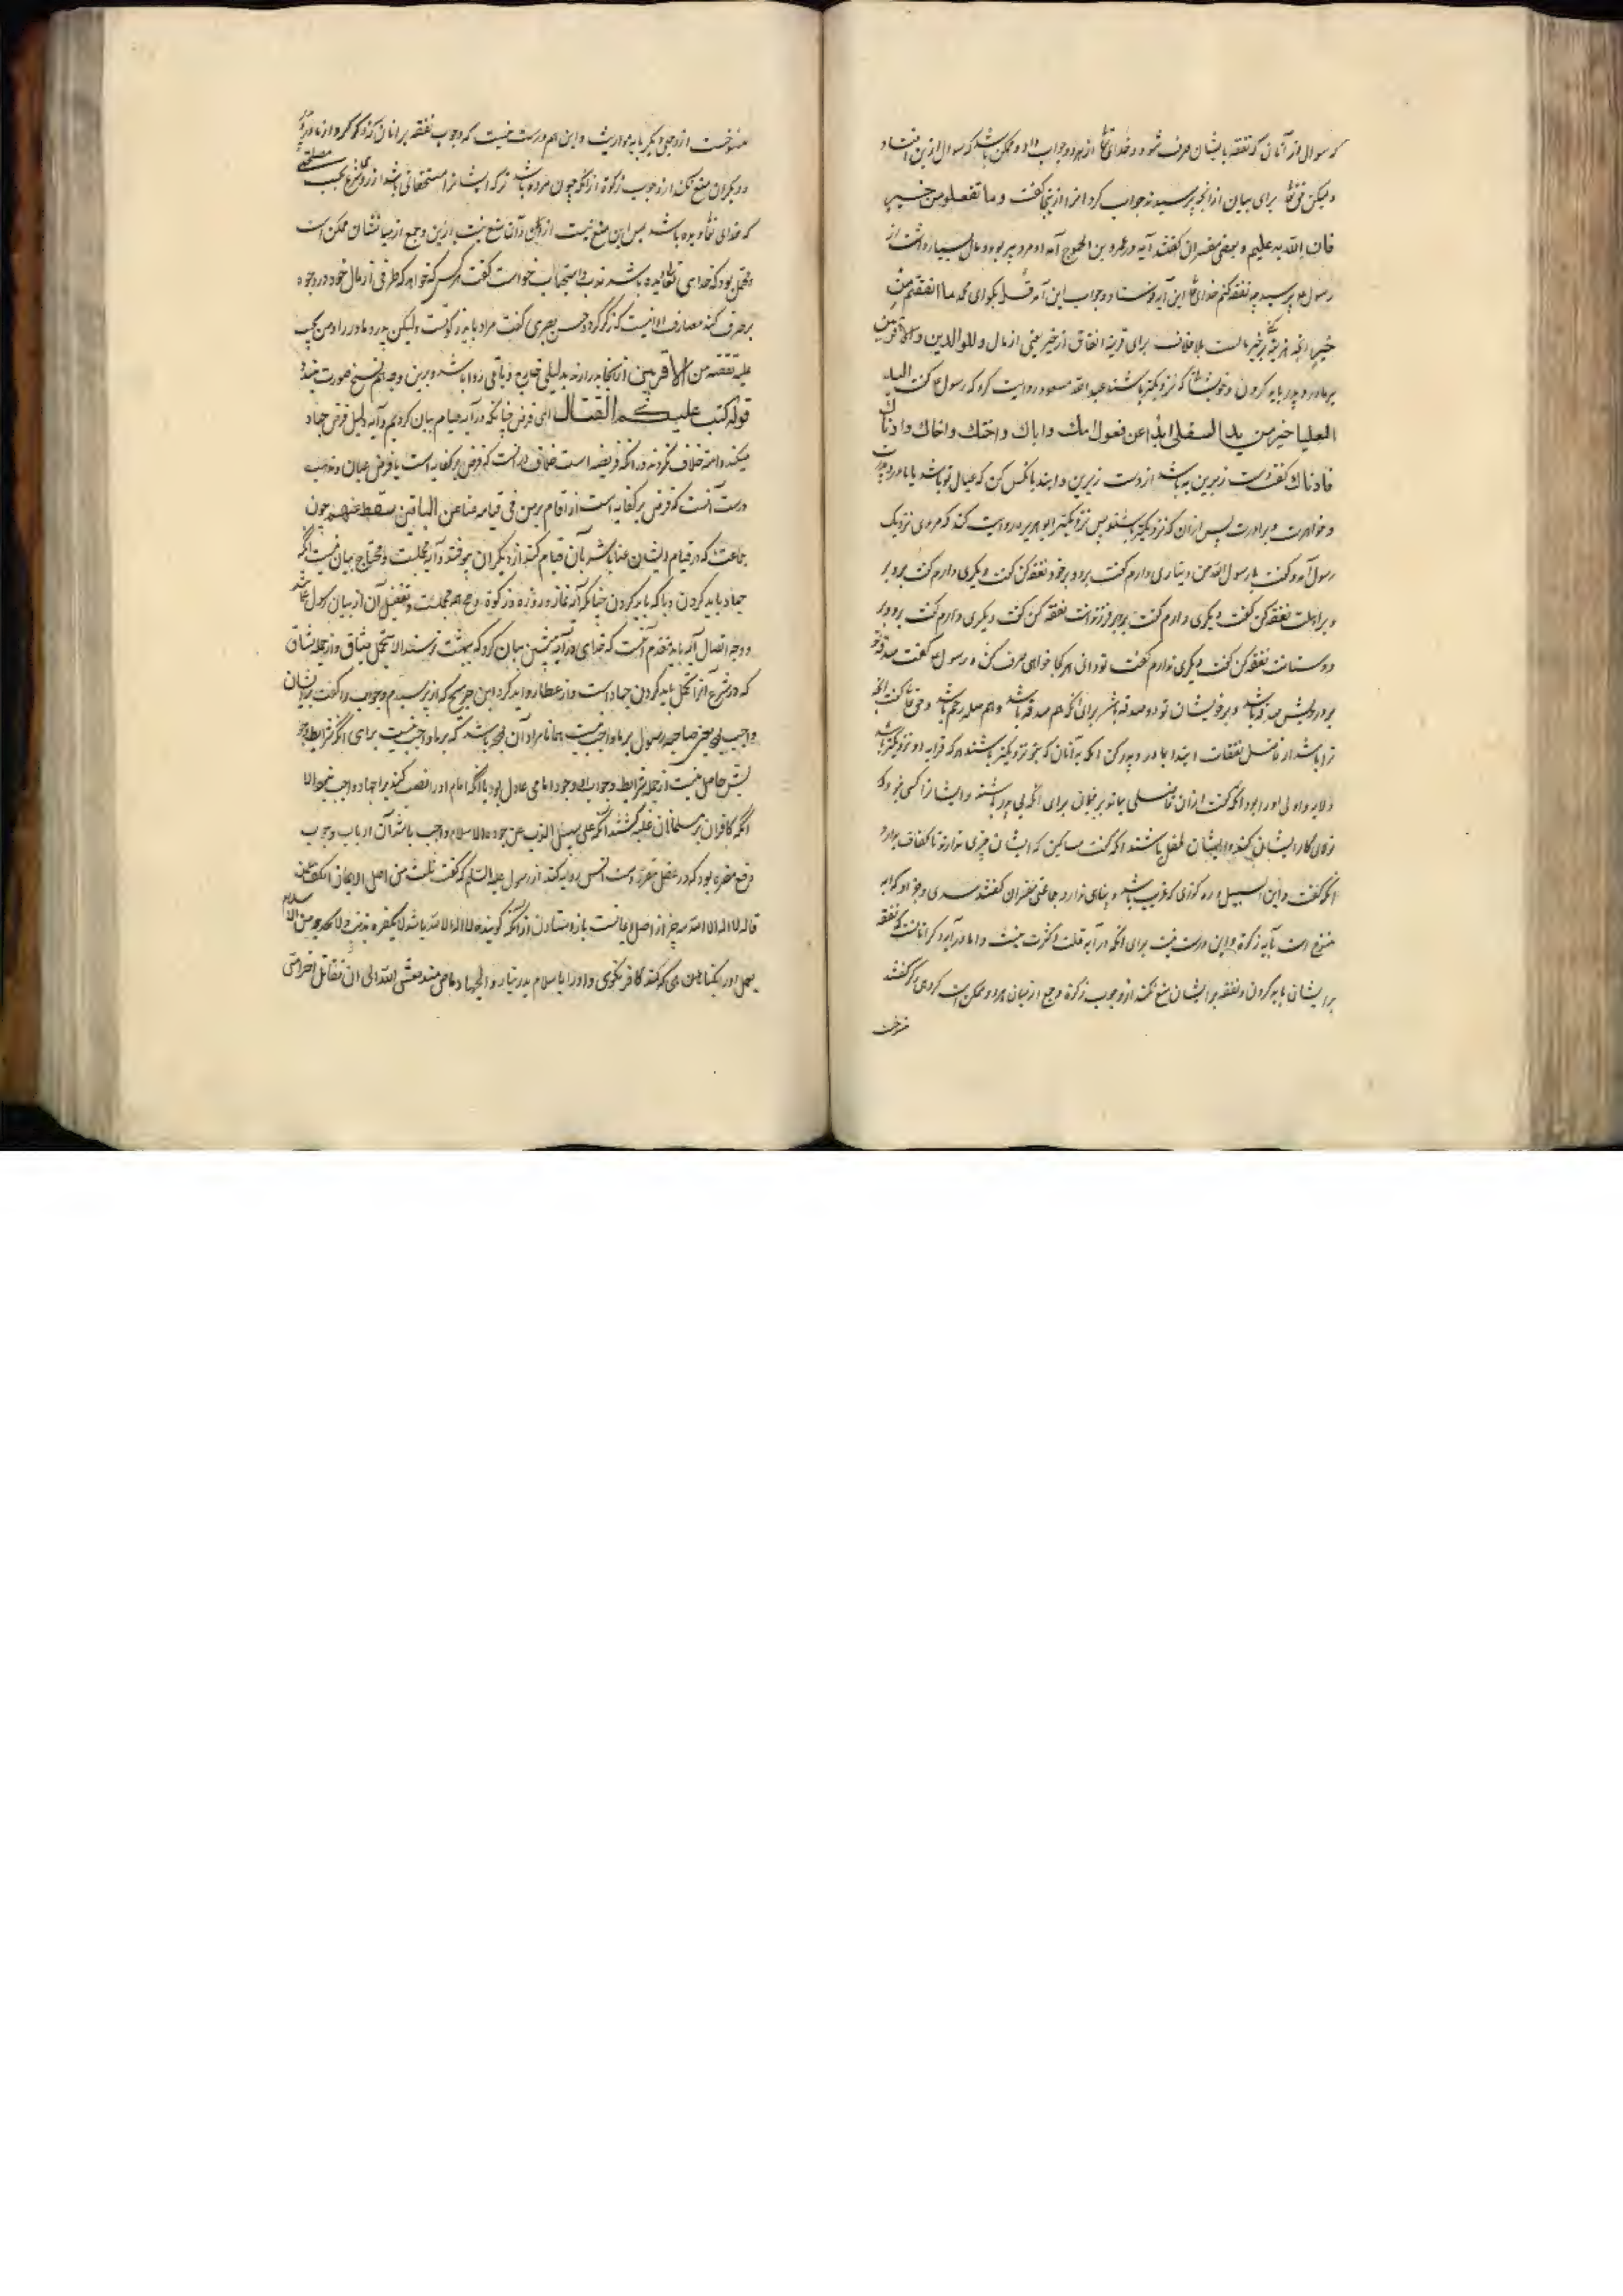 که سوال از آنان که نفقه بایشان صرف شود و خدای از هر دو جواب داد و ممکن باشد که سوال ازین افتاد
ولیکن حق تعالی برای بیان از آنچه پرسیدند جواب کرد از اینجا گفت وما تفعلوا من خیر
فان الله به علیم و بعضی مفسران گفتند آیه در عمرو بن الجموح آمد او مرد پیر بود و مال بسیار داشت از
رسول پرسید چه نفقه کنم خدای این آیه فرستاد و جواب این آمد قل بگو ای محمد ما انفقتم من
خیر آنچه هزینه از خیر مالست بلا خلاف برای قرینه انفاق از خیر یعنی از مال وللوالدین والاقربین
بر مادر و پدر باید کردن و خویشان که نزدیکتر باشند عبد الله مسعود روایت کرد که رسول گفت الید
العلیا خیر من ید السفلی ابدا بمن تعول امک واباک واختک واخاک وادناک
فادناک گفت دست زبرین به باشد از دست زیرین و ابتدا بآنکس کن که عیال تو باشد یا مادر و پدرت
و خواهرت و برادرت پس از آن که نزدیکتر باشد پس نزدیکتر ابو هریره روایت کند که مردی نزدیک
رسول آمد و گفت یا رسول الله من دیناری دارم گفت برو بر خود نفقه کن گفت دیگری دارم گفت برو بر
و بر اهلت نفقه کن گفت دیگری دارم گفت برو بر فرزندانت نفقه کن گفت دیگری دارم گفت برو بر
دوستانت نفقه کن گفت دیگری ندارم گفت تو دانی هر کجا خواهی صرف کن و رسول گفت صدقه تو
بر درویش صدقه باشد و بر خویشان تو دو صدقه باشد برای آنکه هم صدقه باشد و هم صله رحم باشد و حق تعالی گفت آنچه
ترا باشد از فاضل نفقات ابتدا بمادر و پدر کن آنگه به آنان که بتو نزدیکتر باشند هر که قرابه او نزدیکتر باشد
ولایه و اولی او را بود آنگه گفت از آن فاضلی بماند بر یتیمان برای آنکه بی پدر باشند و ایشانرا کسی نبود که
تولای کار ایشان کند و ایشان طفل باشند آنگه گفت مساکین که ایشان چیزی ندارند تا کفاف بود
آنگه گفت و ابن السبیل و ره گذری که غریب باشد و پناهی ندارد و جماعتی مفسران گفتند سدی و جز او که آیه
منسوخ است بآیه زکوة و این درست نیست برای آنکه در آیه قلت و کثرت نیست و اما در آیه ذکر آنانست که نفقه
بر ایشان باید کردن و نفقه بر ایشان منع نکند از وجوب زکوة و جمع از میان هر دو ممکن است
منسوخست
منسوخست از وجهی دیگر بآیه مواریث و این هم درست نیست که وجوب نفقه بر آنان که ذکر کرد از مادر و پدر
و دیگران منع نکند از وجوب زکوة از آنکه چون مرده باشد ترکه ایشانرا مستحقانی باشد از روی شرع بحسب مصلحتی
که خدای تعالی دیده باشد پس این منع نیست از آن و آن منع نیست ازین و جمع از میانشان ممکن است
و محتمل بود که خدای باشد ندب و استحباب خواست گفت هر کس که خواهد که طرفی از مال خود در وجوه
بر صرف کند مصارف او اینست که ذکر کرد و حسن بصری گفت مراد بآیه زکوتست ولیکن پدر و مادر را و من یجب
علیه نفقته من الاقربین از آنجا بدر آرند بدلیلی خارج و باقی روا باشد و برین وجه هم نسخ صورت نبندد
قوله کتب علیکم القتال ای فرض چنانکه در آیه صیام بیان کردیم و آیه دلیل فرض جهاد
میکند و امت خلاف نکردند در آنکه فریضه است خلاف در آنست که فرض بر کفایه است یا فرض عیان و مذهب
درست آنست که فرض بر کفایه است اذا قام به من فی قیامه غنا عن الباقین سقط عنهم چون
جماعتی که در قیام ایشان غنا باشد بآن قیام کنند از دیگران بیوفتد و آیه مجملست و محتاج بیان نیست آنکه
جهاد باید کردن و با که باید کردن چنانکه آیه نماز و روزه و زکوة و حج همه مجملست و تفصیل آن از بیان رسول
و وجه اتصال آیه بآیه مقدم آنست که خدای در آیه پیشین بیان کرد که ببهشت نرسند الا بتحمل مشاق و از جمله مشاق
که در شرع آنرا تحمل باید کردن جهاد است و از عطا روایت کرد ابن جریج که از وی پرسیدم و جواب داد گفت بر ایشان
واجب بود یعنی صاحبه رسول بر ما واجب نیست همانا مراد آن باشد که بر ما واجب نیست برای آنکه شرایط وجوبش
حاصل نیست از جمله شرایط وجوب او وجود امامی عادل بود یا آنکه امام او را نصب کند برای جهاد واجب نبود الا
آنگه کافران بر مسلمانان غلبه کنند آنگه علی سبیل الذب عن حوزه الاسلام واجب باشد آن از باب وجوب
دفع مضره بود که در عقل مقرر است انس روایه کند از رسول علیه السلام که گفت ثلث من اصل الایمان الکف عمن
قال لا اله الا الله سه چیز از اصل ایمانست باز استادن از آنکه گوینده لا اله الا الله باشد لا یکفره بذنب ولا یخرجه من الاسلام
بعمل او را بگناهی که کند کافر نگوی و او را باسلام بدر نیارد والجهاد ماض منذ بعثنی الله الی ان تقاتل اخر امتی